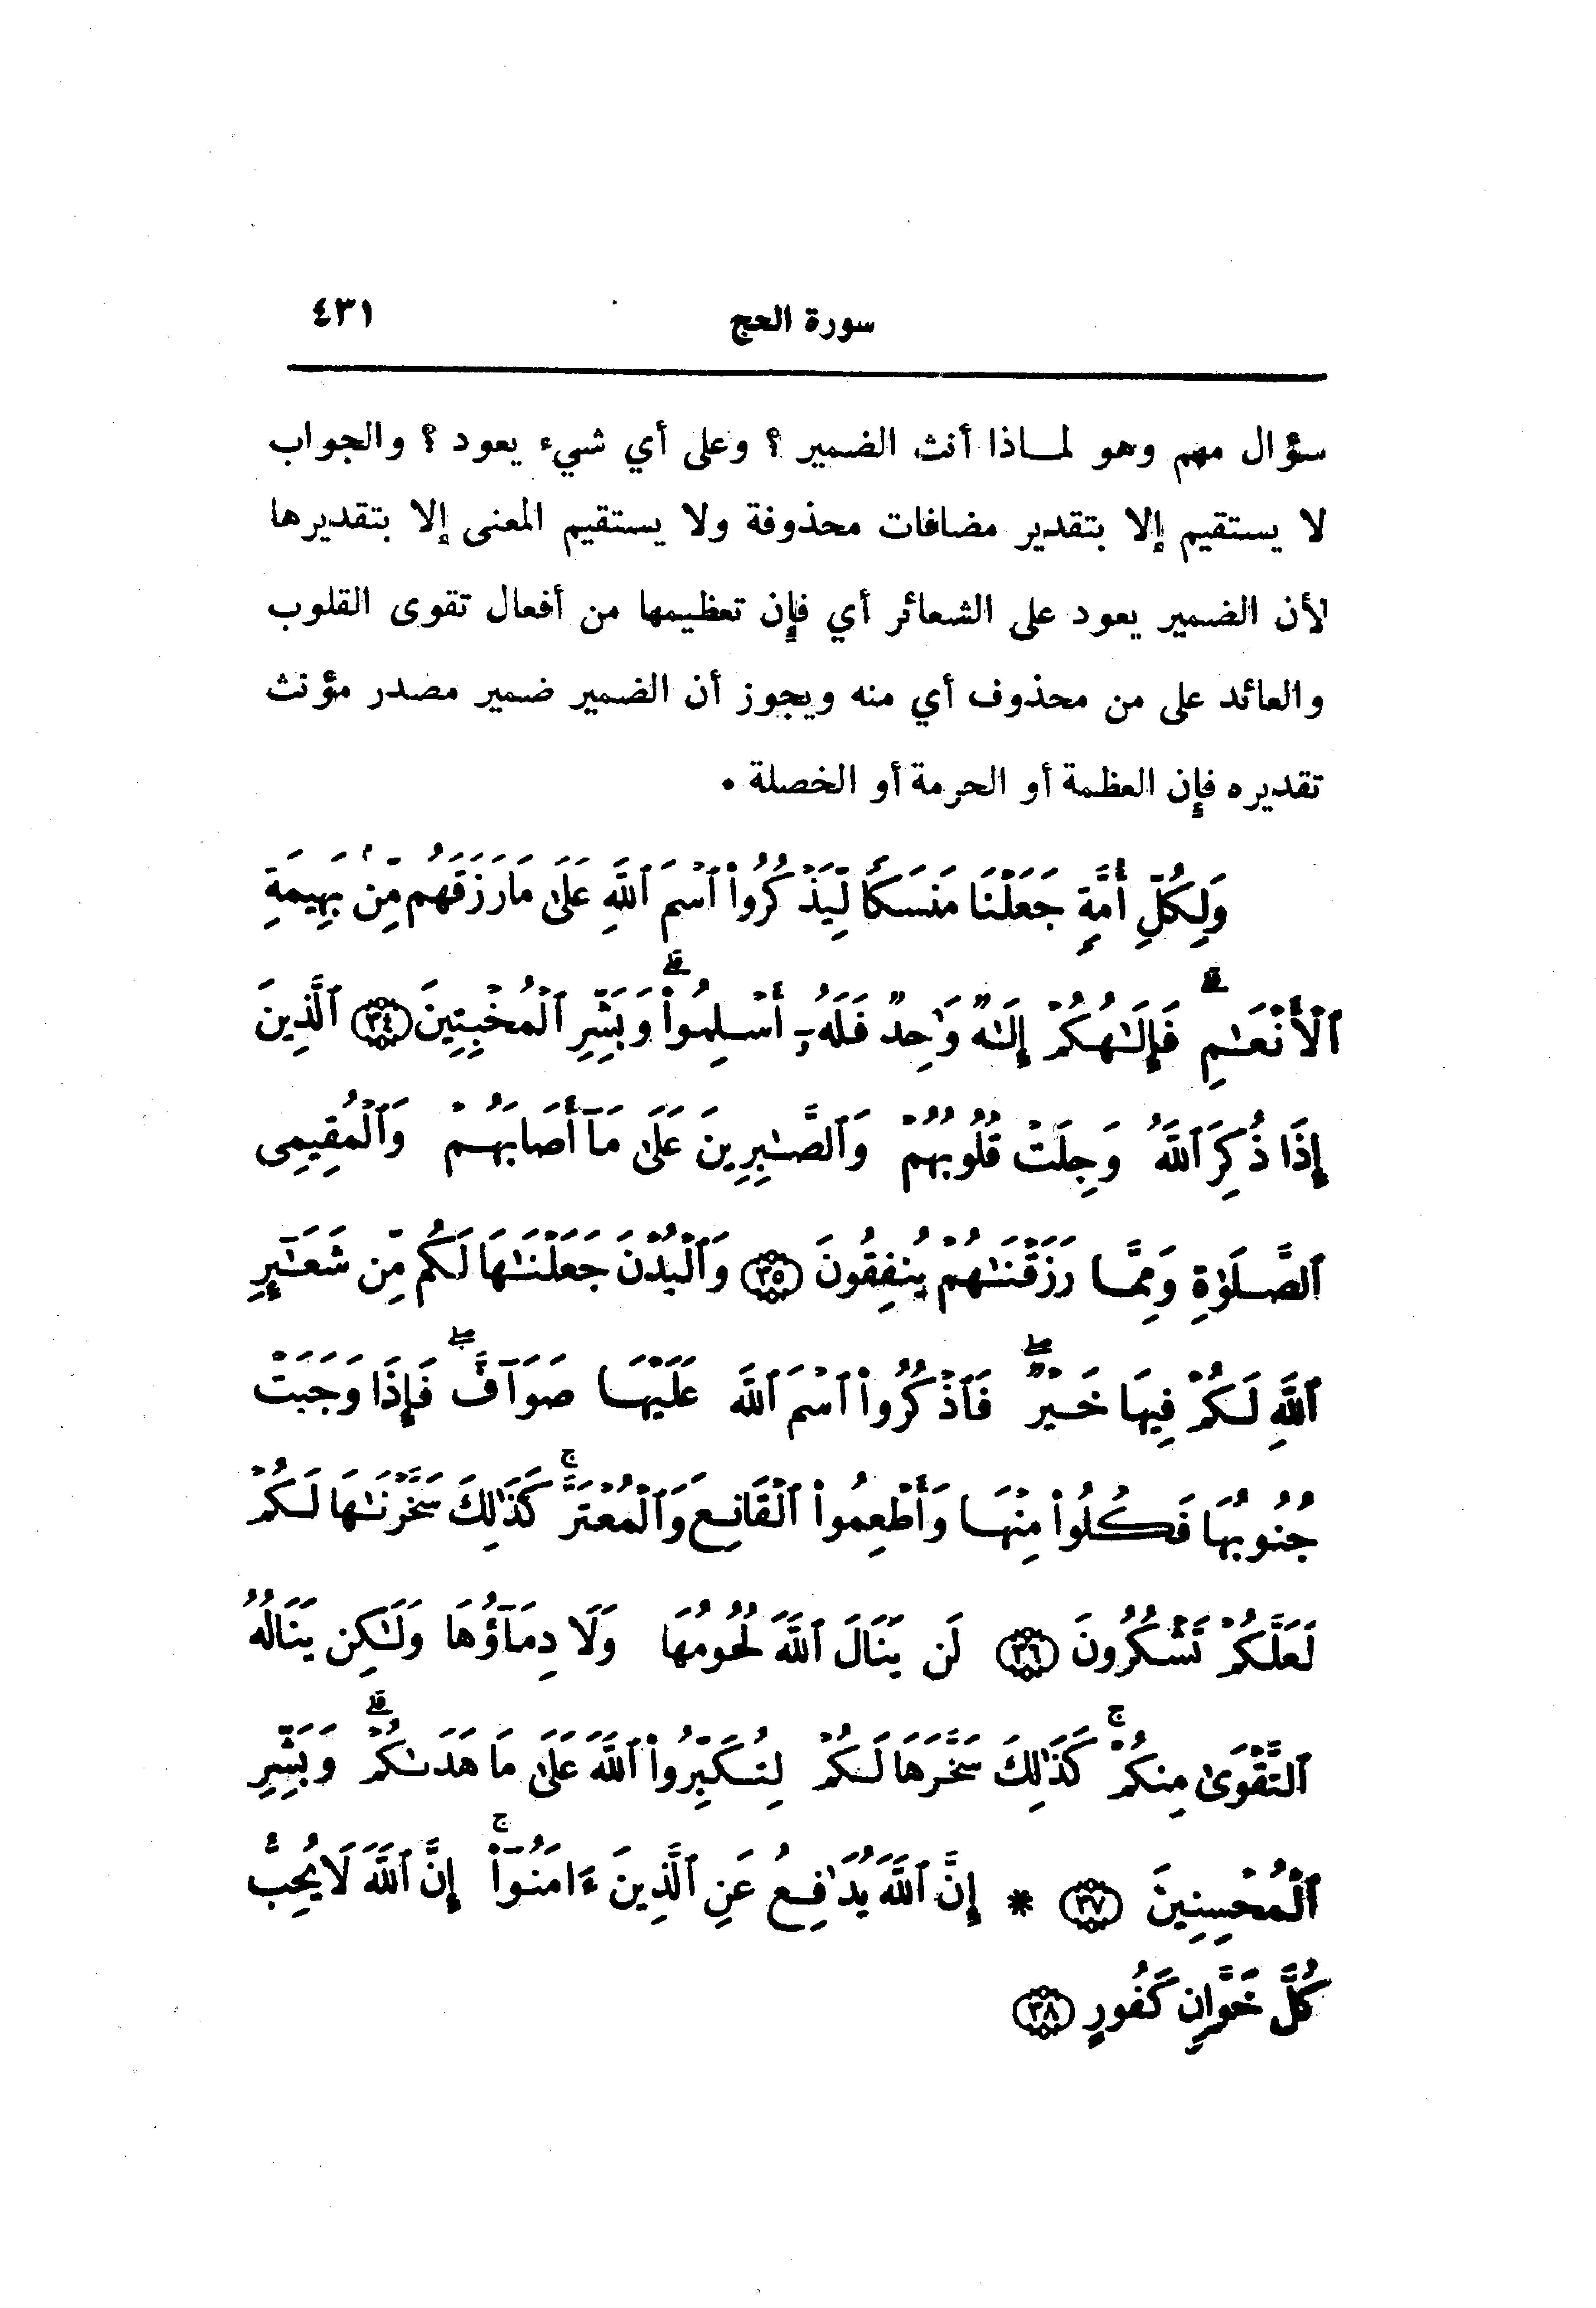 سورة الحج ٤٣١
سؤال مهم وهو لمـاذا أنث الضمير ؟ وعلى أي شيء يعود ؟ والجواب
لا يستقيم إلا بتقدير مضافات محذوفة ولا يستقيم المعنى إلا بتقديرها
لأن الضمير يعود على الشعائر أي فإن تعظيمها من أفعال تقوى القلوب
والعائد على من محذوف أي منه ويجوز أن الضمير ضمير مصدر مؤنث
تقديره فإن العظمة أو الحرمة أو الخصلة ٠
وَلِكُلِّ أُمَّةٍ جَعَلْنَا مَنسَكًا لِّيَذْكُرُوا۟ ٱسْمَ ٱللَّهِ عَلَىٰ مَا رَزَقَهُم مِّنۢ بَهِيمَةِ
ٱلْأَنْعَـٰمِ ۗ فَإِلَـٰهُكُمْ إِلَـٰهٌ وَٰحِدٌ فَلَهُۥٓ أَسْلِمُوا۟ ۗ وَبَشِّرِ ٱلْمُخْبِتِينَ ﴿٣٤﴾ ٱلَّذِينَ
إِذَا ذُكِرَ ٱللَّهُ وَجِلَتْ قُلُوبُهُمْ وَٱلصَّـٰبِرِينَ عَلَىٰ مَآ أَصَابَهُمْ وَٱلْمُقِيمِى
ٱلصَّلَوٰةِ وَمِمَّا رَزَقْنَـٰهُمْ يُنفِقُونَ ﴿٣٥﴾ وَٱلْبُدْنَ جَعَلْنَـٰهَا لَكُم مِّن شَعَـٰٓئِرِ
ٱللَّهِ لَكُمْ فِيهَا خَيْرٌ ۖ فَٱذْكُرُوا۟ ٱسْمَ ٱللَّهِ عَلَيْهَا صَوَآفَّ ۖ فَإِذَا وَجَبَتْ
جُنُوبُهَا فَكُلُوا۟ مِنْهَا وَأَطْعِمُوا۟ ٱلْقَانِعَ وَٱلْمُعْتَرَّ ۚ كَذَٰلِكَ سَخَّرْنَـٰهَا لَكُمْ
لَعَلَّكُمْ تَشْكُرُونَ ﴿٣٦﴾ لَن يَنَالَ ٱللَّهَ لُحُومُهَا وَلَا دِمَآؤُهَا وَلَـٰكِن يَنَالُهُ
ٱلتَّقْوَىٰ مِنكُمْ ۚ كَذَٰلِكَ سَخَّرَهَا لَكُمْ لِتُكَبِّرُوا۟ ٱللَّهَ عَلَىٰ مَا هَدَىٰكُمْ ۗ وَبَشِّرِ
ٱلْمُحْسِنِينَ ﴿٣٧﴾ * إِنَّ ٱللَّهَ يُدَٰفِعُ عَنِ ٱلَّذِينَ ءَامَنُوٓا۟ ۚ إِنَّ ٱللَّهَ لَا يُحِبُّ
كُلَّ خَوَّانٍ كَفُورٍ ﴿٣٨﴾